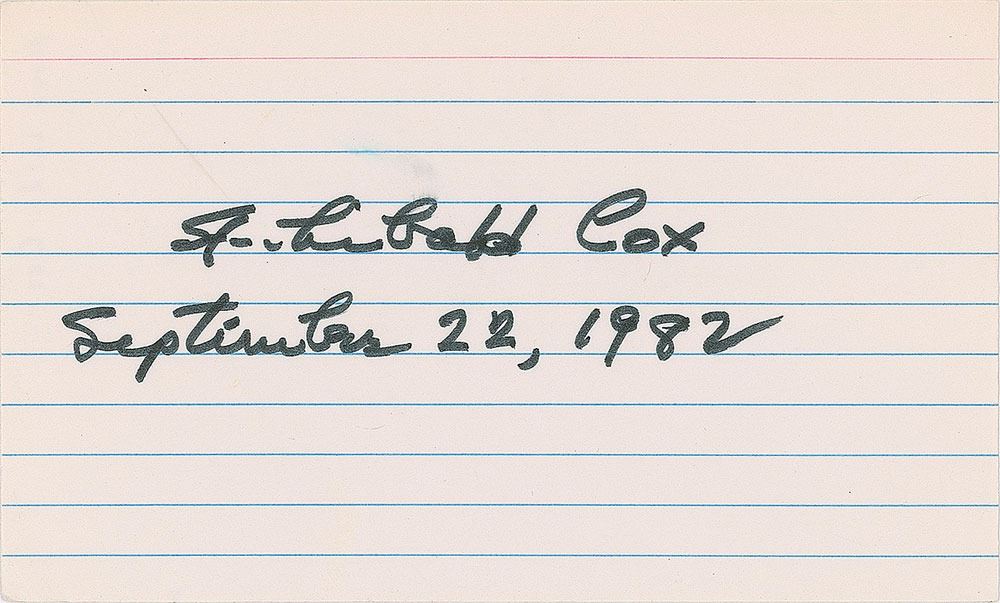 Archibald Cox
September 22, 1982